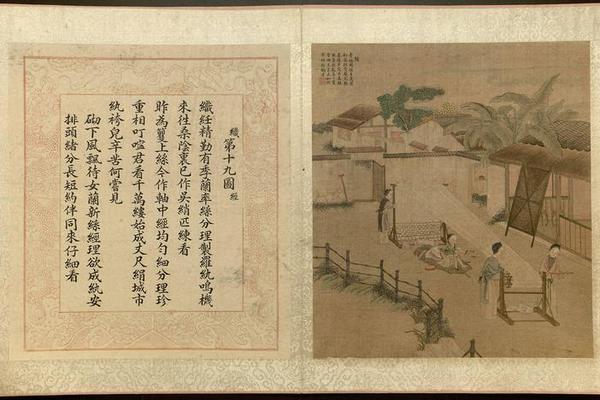 織第十九圖 經
織絍精勤有季蘭牽絲分理製羅紈鳴機
來徃桑陰裏已作吳綃匹練看
昨為簟上絲今作軸中經均勻細分理珍
重相叮嚀君看千萬縷始成丈尺絹城市
紈袴兒辛苦何嘗見
砌下風飄待女蘭新絲經理欲成紈安
排頭緒分長短約伴同來仔細看